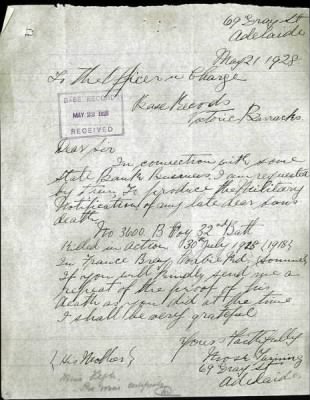 69 Gray St
Adelaide
May 21 1928
To The Officer in Charge
Base Records
Victoria Barracks
BASE RECORDS
MAY 23 1928
RECEIVED
Dear Sir
In connection with some
State Bank Business, I am requested
by Them To produce the Military
Notification of my late dear sons
death
No 3600 B Coy 32nd Batt
Killed in action 30th July 1928 (1918)
In France Bray Corbie Rd, Somme
If you will kindly send me a
repeat of the proof of his
death as you did at the time
I shall be very grateful
Yours Faithfully
69 Gray St
Adelaide
(His Mother)